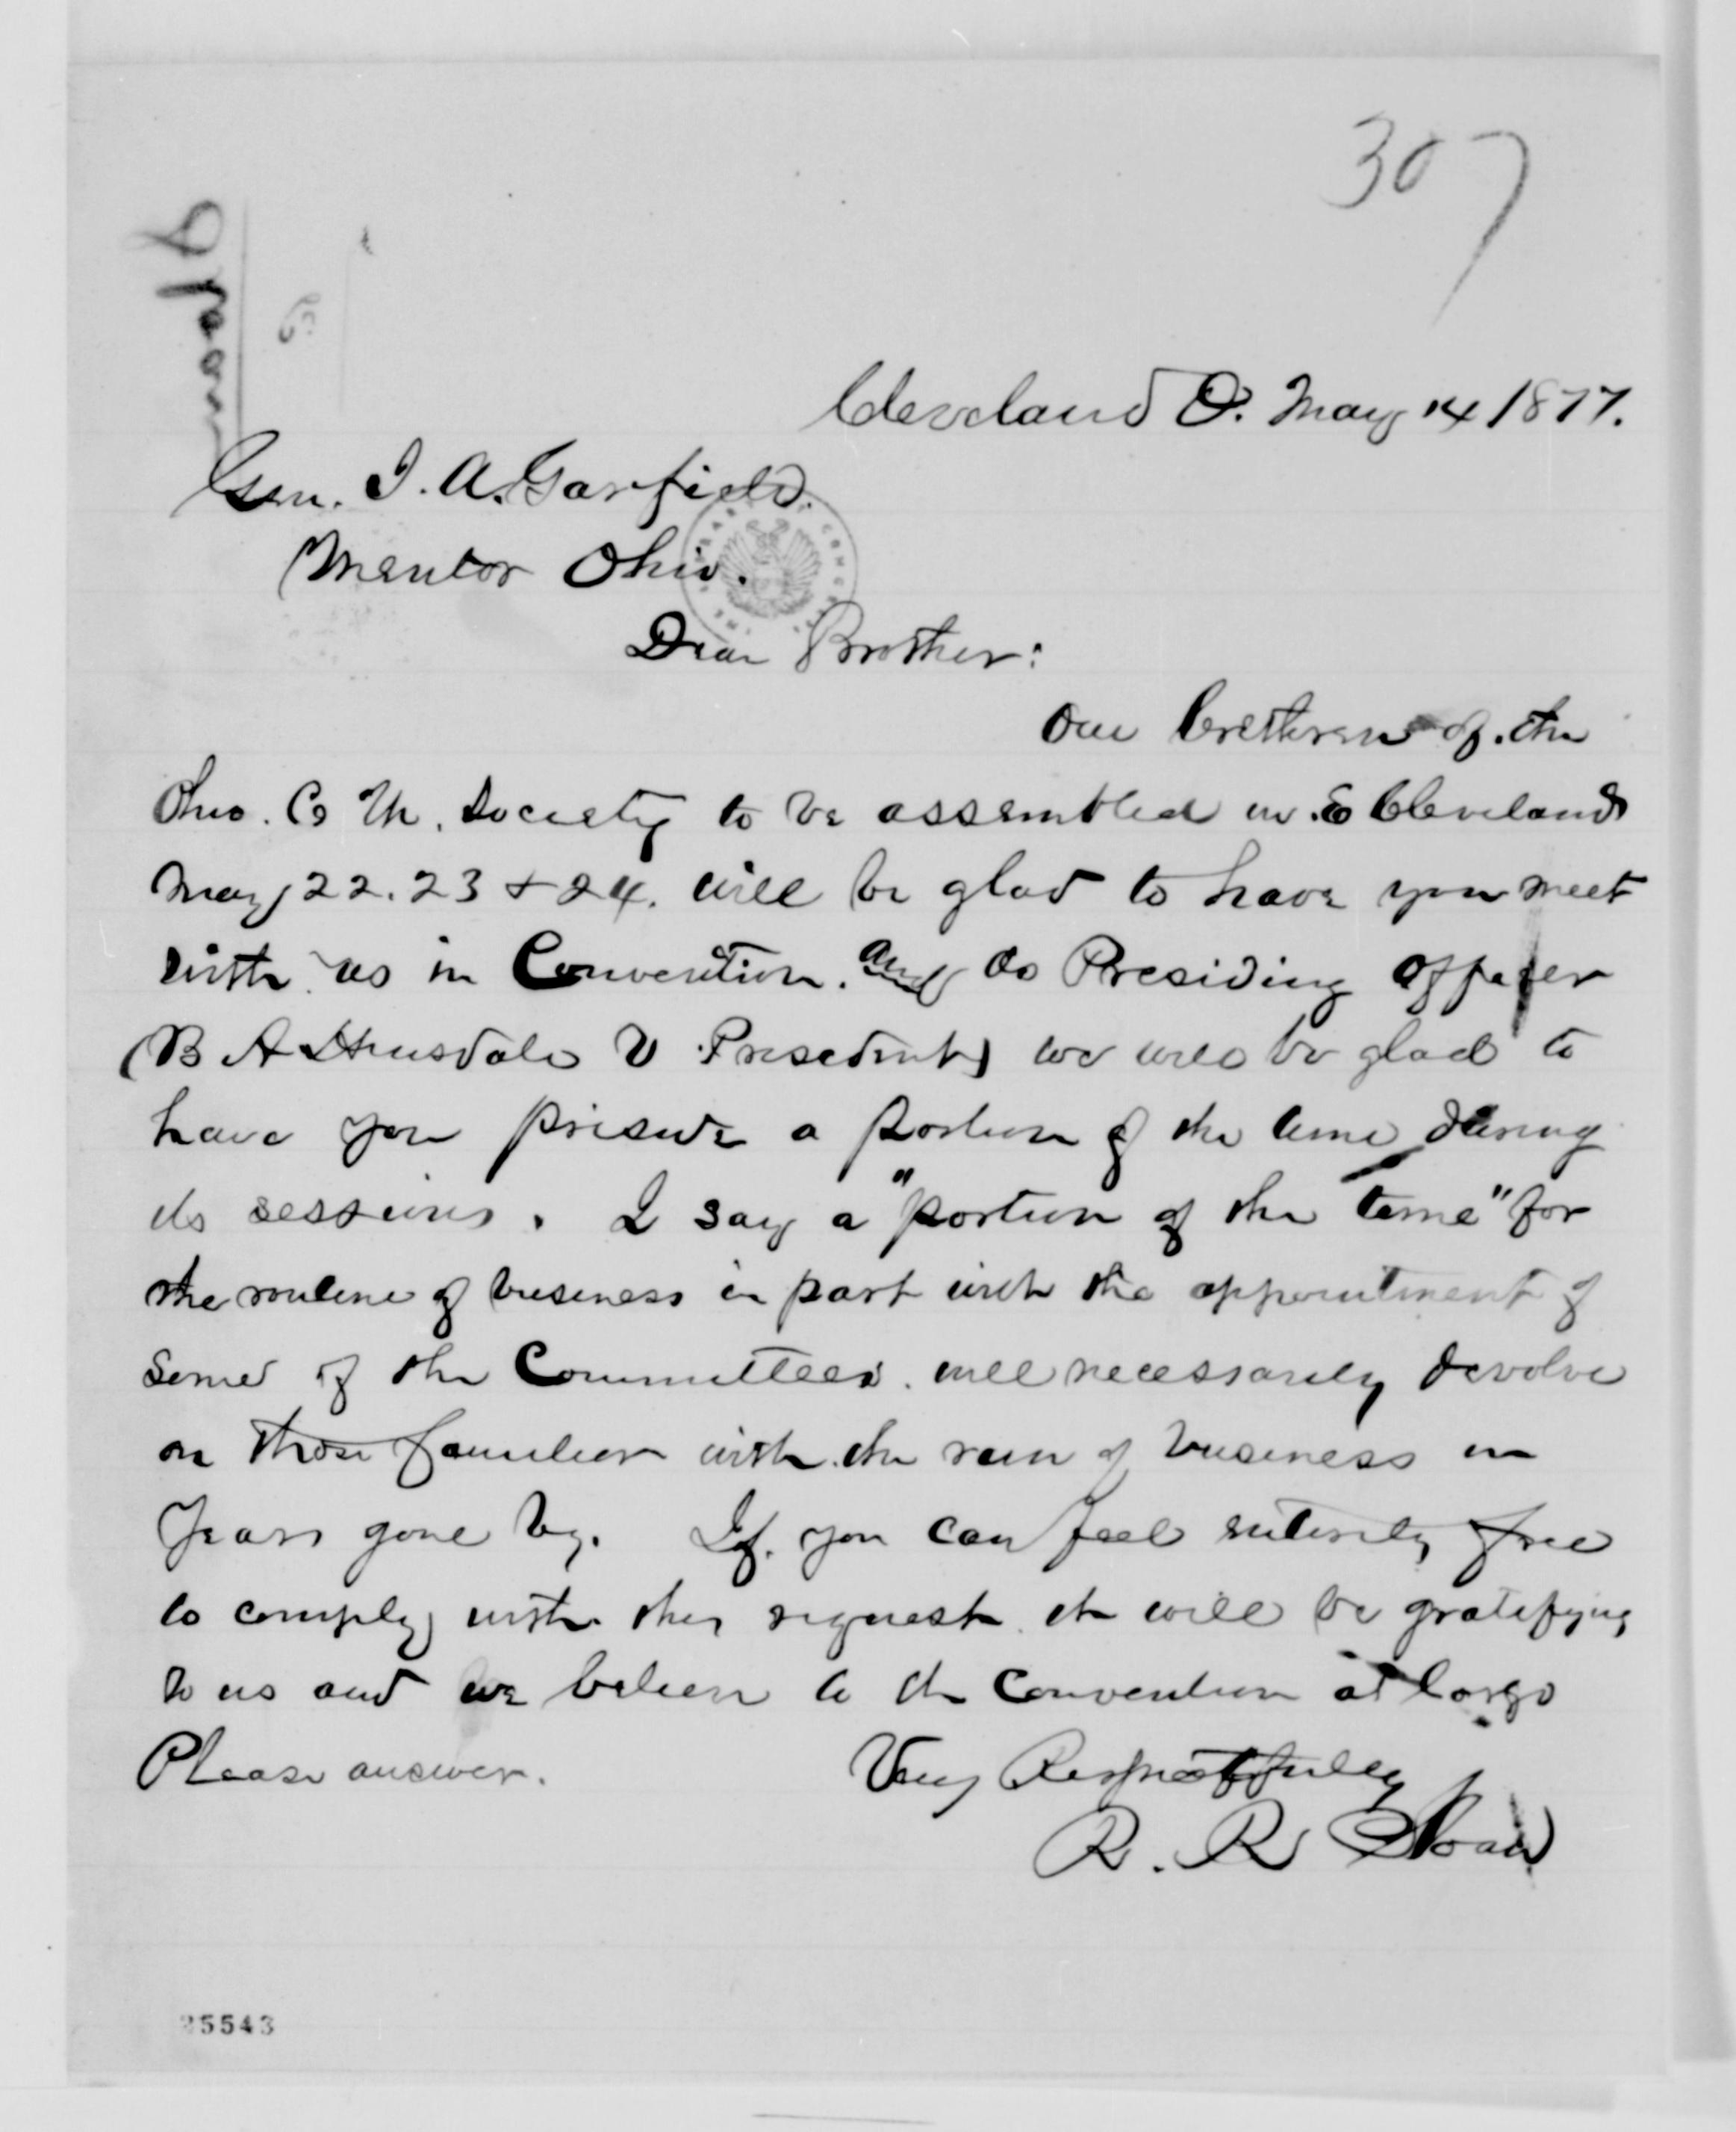 307
Sloan
Cleveland O. May 14 1877.
Gen. J. A. Garfield.
Mentor Ohio.
Dear Brother:
Our brethren of the
Ohio. C M. Society to be assembled in E Cleveland
May 22. 23 & 24. will be glad to have you meet
with us in Convention. and as Presiding officer
(B A Hinsdale V. President) we will be glad to
have you preside a portion of the time during
its sessions. I say a "portion of the time" for
the routine of business in part with the appointment of
some of the Committees. will necessarily devolve
on those familiar with the run of business in
years gone by. If you can feel entirely free
to comply with this request it will be gratifying
to us and we believe to the convention at large
Please answer. Very Respectfully
R. R Sloan
25543